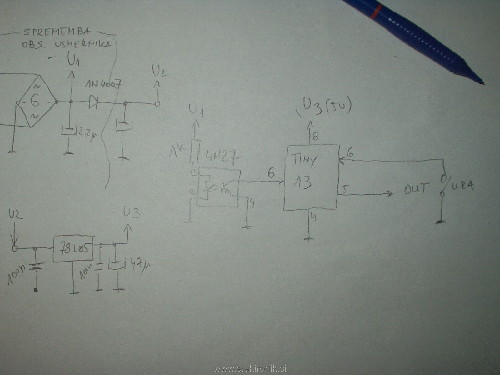 SPREMEMBA
OBS. USMERNIKA
U1
1N4007
U2
~
- G +
~
2,2µ
U1
1K
4N27
6
4
U3 (5V)
8
TINY
13
6
5
OUT
URA
4
U2
78L05
U3
100n
47µ